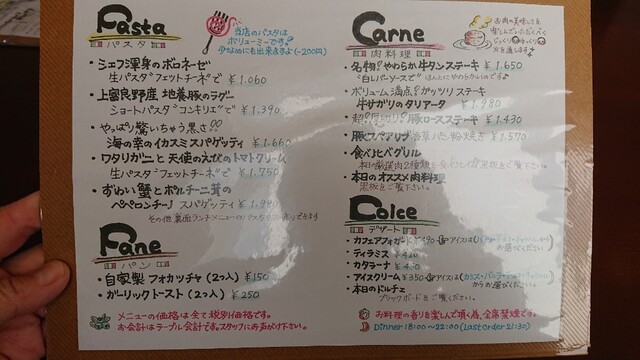 Pasta
パスタ
当店のパスタは
ボリューミーです。
少なめにも出来ますよ(-200円)
・シェフ渾身のボロネーゼ
生パスタ"フェットチーネ"で ¥1.060
・上富良野産 地養豚のラグー
ショートパスタ"コンキリエ"で ¥1.390
・やっぱり驚いちゃう黒さ!?
海の幸のイカスミスパゲッティ ¥1.660
・ワタリガニと天使のえびのトマトクリーム
生パスタ"フェットチーネ"で ¥1.750
・ずわい蟹とポルチーニ茸の
ペペロンチーノ スパゲッティ
その他裏面ランチメニューのパスタ
Pane
パン
・自家製 フォカッチャ(2つ入) ¥150
・ガーリックトースト(2つ入) ¥250
メニューの価格は全て税別価格です。
お会計はテーブル会計です。スタッフにお声がけ下さい。
Carne
肉料理
お肉の美味しさを
楽しんでいただく
じっくりゆっくり
火を通します
・名物?やわらか牛タンステーキ ¥1.650
"白レバーソースで" ほんとにやわらかいのです
・ボリューム満点?ガッツリステーキ
牛サガリのタリアータ ¥1.980
・超?厚切り?豚ロースステーキ ¥1.430
・豚スペアリブ 香草パン粉焼き ¥1.570
・食べ比べグリル
本日の厳選肉2種類を 黒板をご覧下さい。
・本日のオススメ肉料理
黒板をご覧下さい。
Dolce
デザート
・カフェアフォガード
・ティラミス ¥420
・カタラーナ
・アイスクリーム ¥350 アイスは
からお選び下さい。
・本日のドルチェ
ブラックボードをご覧ください。
お料理の香りを楽しんで頂く為、全席禁煙です。
Dinner 18:00~22:00 (Last Order 21:30)